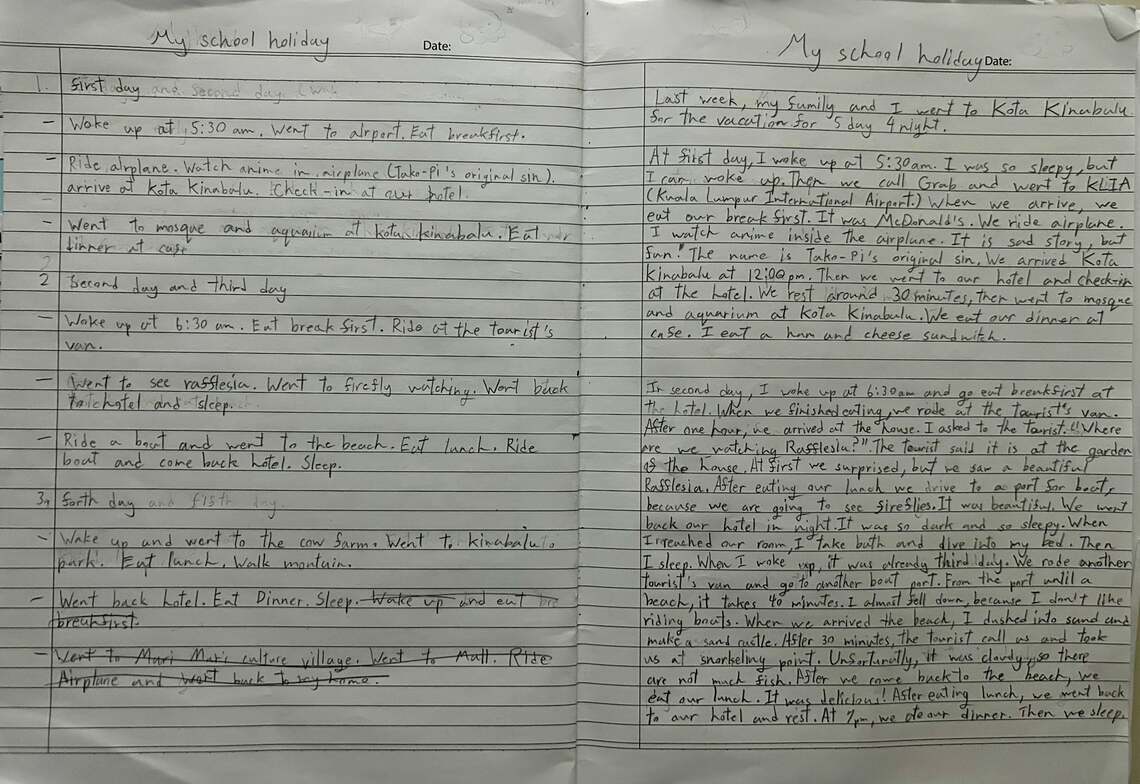 My school holiday
Date:
1. First day and second day
- Woke up at 5:30 am. Went to airport. Eat breakfirst.
- Ride airplane. Watch anime in airplane (Tako-Pi's original sin).
arrive at Kota Kinabalu. Check-in at our hotel.
- Went to mosque and aquarium at kota kinabalu. Eat
dinner at cafe
2 Second day and third day
- Woke up at 6:30 am. Eat breakfirst. Ride at the tourist's
van.
- Went to see rafflesia. Went to firefly watching. Went back
to hotel and sleep.
- Ride a boat and went to the beach. Eat lunch. Ride
boat and come back hotel. Sleep.
3, forth day and fifth day
- Wake up and went to the cow farm. Went to kinabalu
park. Eat lunch. Walk montain.
- Went back hotel. Eat Dinner. Sleep. Wake up and eat
breakfirst.
- Went to Mari Mari culture village. Went to Mall. Ride
Airplane and went back to my home.
My school holiday
Date:
Last week, my family and I went to Kota Kinabalu
for the vacation for 5 day 4 night.
At first day, I woke up at 5:30am. I was so sleepy, but
I can woke up. Then we call Grab and went to KLIA
(Kuala Lumpur International Airport.) When we arrive, we
eat our break first. It was McDonald's. We ride airplane.
I watch anime inside the airplane. It is sad story, but
fun." The name is Tako-Pi's original sin. We arrived Kota
Kinabalu at 12:00pm. Then we went to our hotel and check-in
at the hotel. We rest around 30 minutes, then went to mosque
and aquarium at Kota Kinabalu. We eat our dinner at
cafe. I eat a ham and cheese sandwitch.
In second day, I woke up at 6:30am and go eat breakfirst at
the hotel. When we finished eating, we rode at the tourist's van.
After one hour, we arrived at the house. I asked to the tourist. "Where
are we watching Rafflesia?". The tourist said it is at the garden
of the house. At first we surprised, but we saw a beautiful
Rafflesia. After eating our lunch we drive to a port for boat,
because we are going to see fireflies. It was beautiful. We went
back our hotel in night. It was so dark and so sleepy. When
I reached our room, I take bath and dive into my bed. Then
I sleep. When I woke up, it was already third day. We rode another
tourist's van and go to another boat port. From the port until a
beach, it takes 40 minutes. I almost fell down, because I don't like
riding boats. When we arrived the beach, I dushed into sand and
make a sand castle. After 30 minutes, the tourist call us and took
us at snorkeling point. Unsfortunatly, it was cloudy, so there
are not much fish. After we come back to the beach, we
eat our lunch. It was delicious! After eating lunch, we went back
to our hotel and rest. At 7pm, we ate our dinner. Then we sleep.